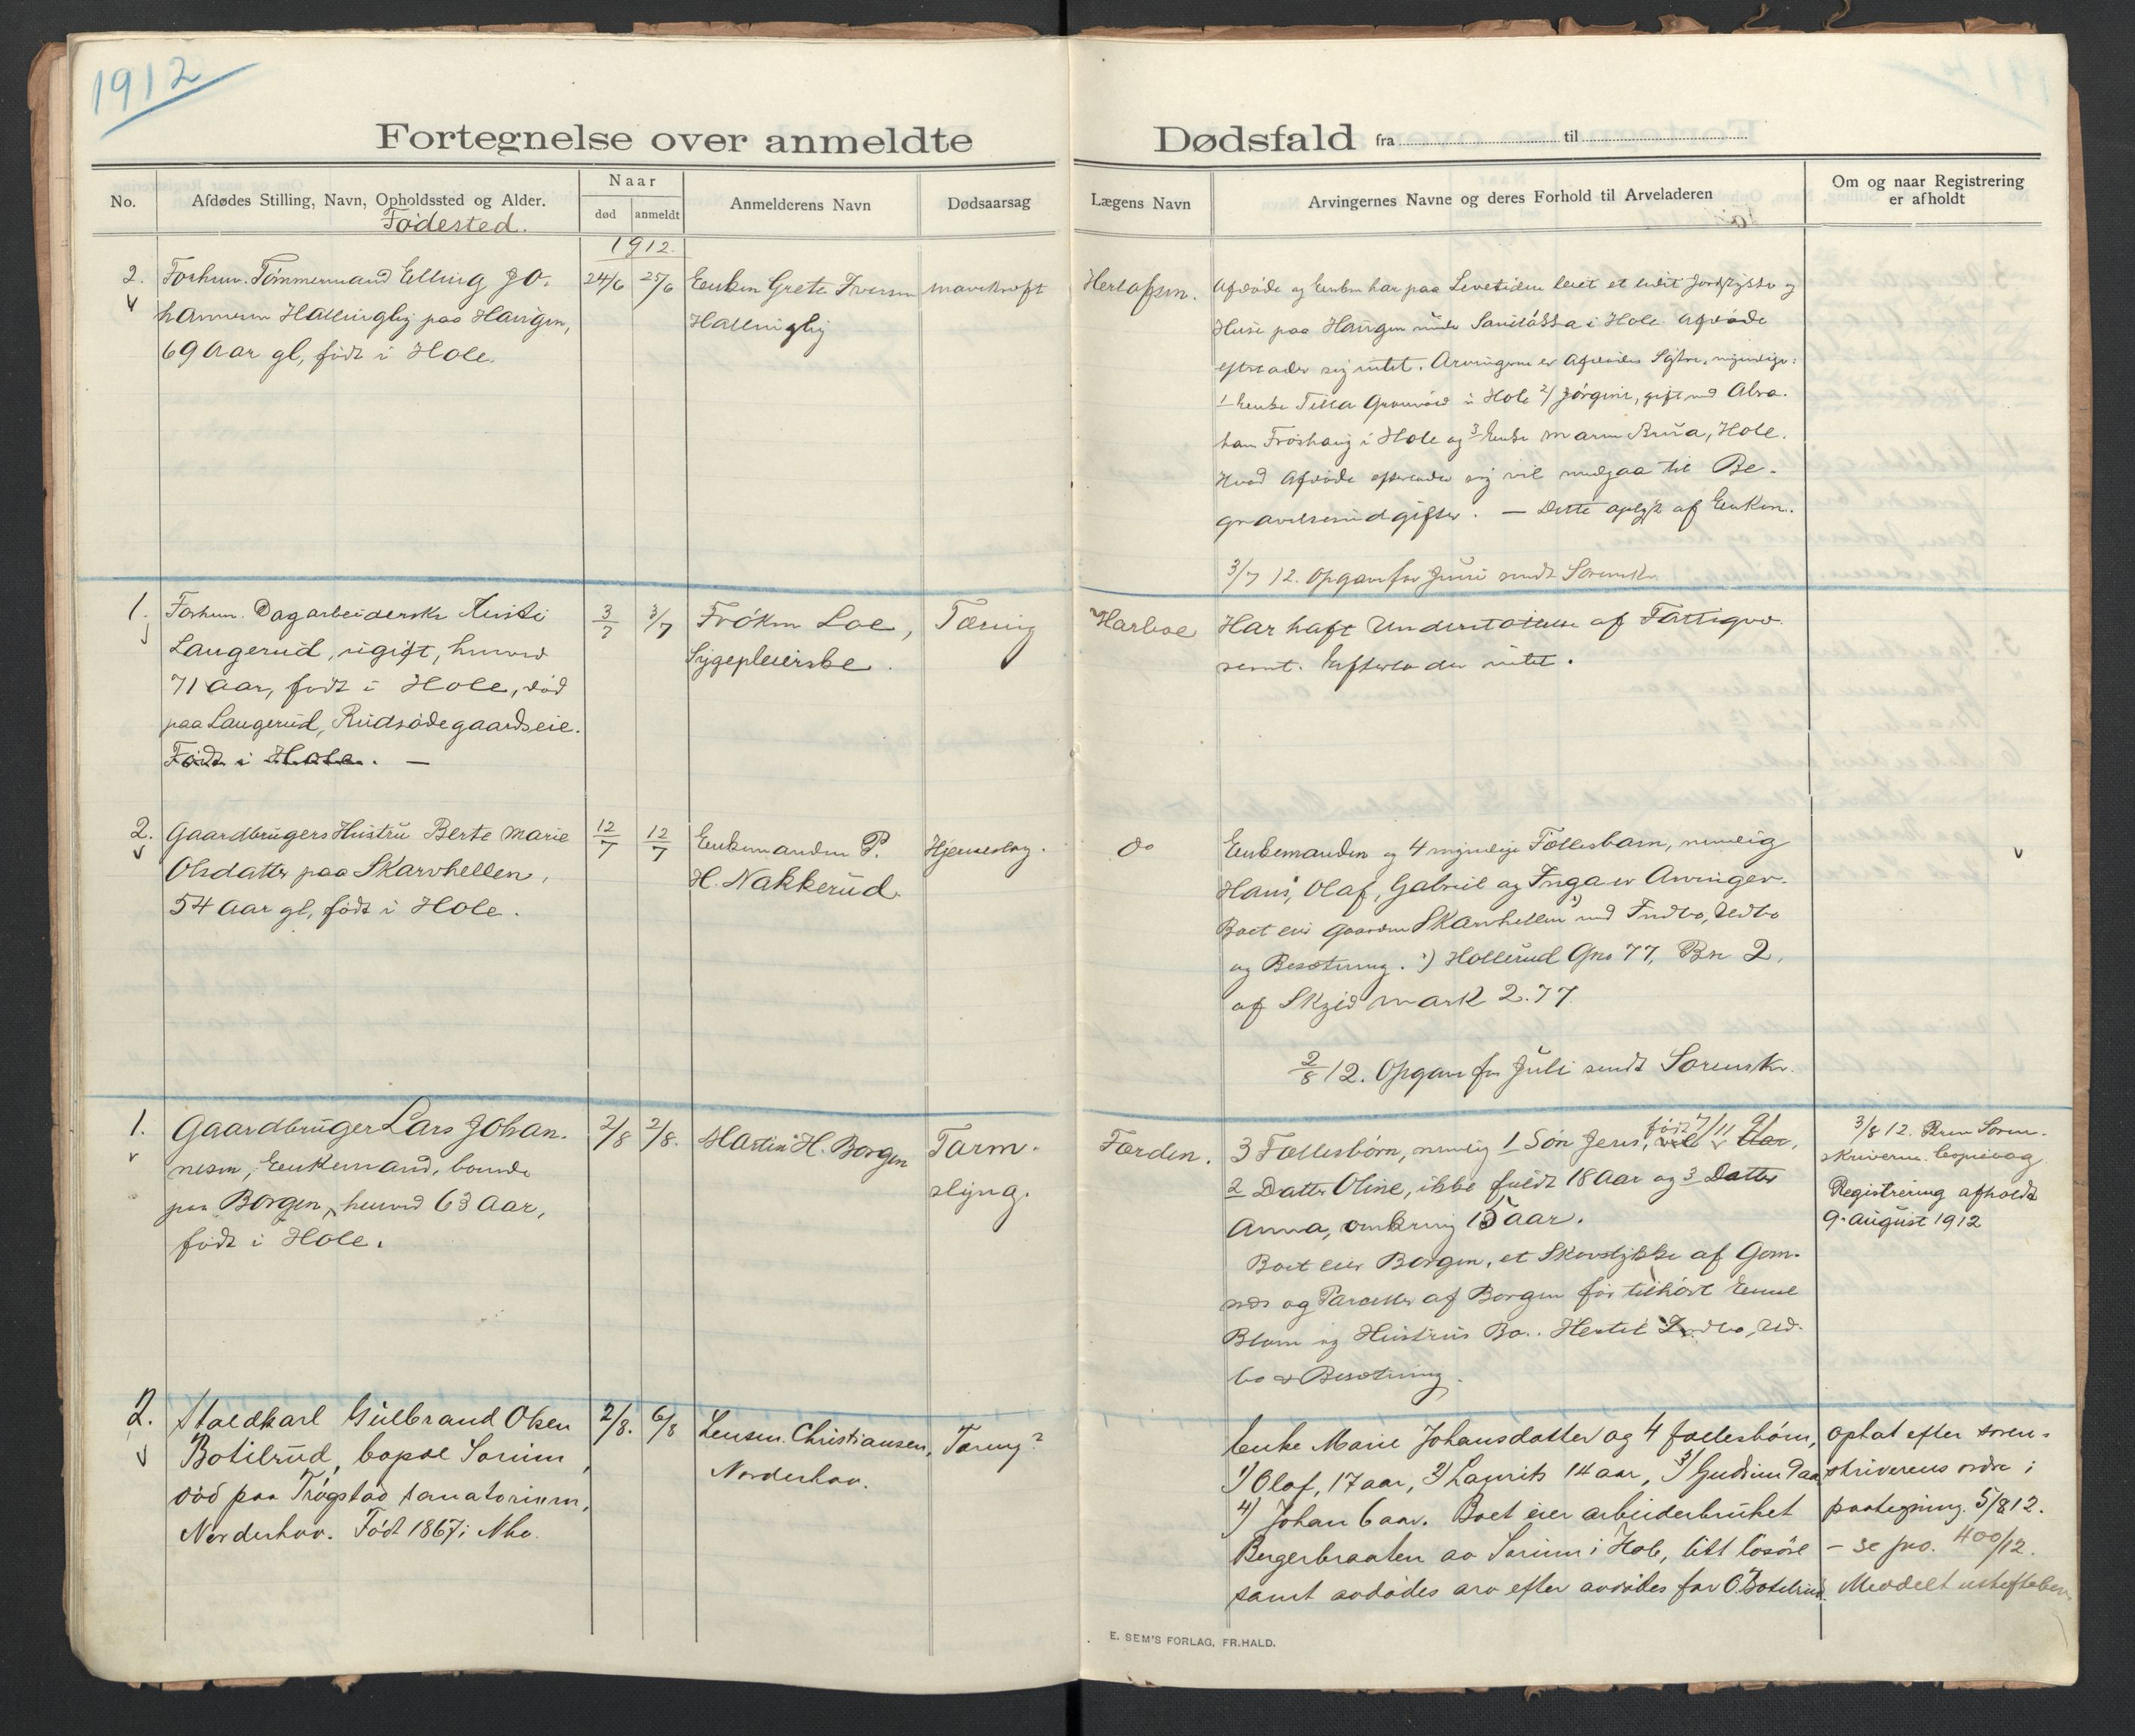 1912
Fortegnelse over anmeldte
No.
Afdødes Stilling, Navn, Opholdssted og Alder.
Fødested.
Naar
død
anmeldt
Anmelderens Navn
Dødsaarsag
1912.
2.
Forhenv. Tømmermand Elling Jo-
hannesen Hallingby paa Haugen,
69 Aar gl, født i Hole.
24/6
25/6
Enken Grete Iversen
Hallingby
Mavekræft
1.
Forhenv. Dagarbeiderske
Laugerud, ugift, henved
71 Aar, født i Hole, død
paa Laugerud, Rudsødegaardseie.
Født i Hole. —
3/7
3/7
Frøken Loe,
Sygepleierske.
Tæring
2.
Gaardbrugers Hustru Berte Marie
Olsdatter paa Skarvhellen,
54 Aar gl, født i Hole.
12/7
12/7
Enkemanden P.
H. Nakkerud.
Hjerneslag.
1.
Gaardbruger Lars Johan-
nesen, Enkemand, boende
paa Borgen, henved 63 Aar,
født i Hole.
2/8
2/8.
Martin H. Borgen
Tarm-
slyng.
2.
Staldkarl Gulbrand Olsen
Botilrud, bopæl Sørum,
død paa Trøgstad sanatorium,
Norderhov. Født 1867 i Nho.
2/8.
6/8
Lensm. Christiansen,
Norderhov.
Tæring?
Dødsfald fra til
Lægens Navn
Arvingernes Navne og deres Forhold til Arveladeren
Om og naar Registrering
er afholdt
Afdøde og Enken har paa Levetiden leiet et lidet Jordstykke og
Huse paa Haugen under i Hole. Afdøde
efterlader sig intet. Arvingerne er Afdødes Søstre, myndige:
1 Enke Grønvold i Hole 2/ Jørgine, gift med Abra-
ham Frøshaug i Hole og 3 Enke Maren Brua, Hole.
Hvad Afdøde efterlader sig vil medgaa til Be-
gravelsesudgifter. — Dette oplyst af Enken.
3/7 12. Opgave for Juni sendt Sorenskr.
Harboe
Har haft Understøttelse af Fattigvæ-
senet. Efterlader intet.
do
Enkemanden og 4 myndige Fællesbarn, nemlig
Hans, Olaf, Gabriel og Inga er Arvinger.
Boet eier Gaarden Skarvhellen med Indbo, Udbo
og Besætning. Hollerud Gno 77, Bn 2,
af Skyld mark 2.77.
2/8 12. Opgave for Juli sendt Sorenskr.
Færden.
3 Fællesbørn, nemlig 1 Søn Jens, født 7/11 91
2 Datter Oline, ikke fuldt 18 Aar og 3 Datter
Anna, omkring 15 aar.
Boet eier Borgen, et Skovstykke af Gom-
nes og Parceller af Borgen før tilhørt
Blom og Hustrus Bo. Hertil Indbo, Ud-
bo & Besætning.
3/8 12. Brev Soren-
skriveren.
Registrering afholdt
9. august 1912
Enke Marie Johansdatter og 4 fællesbørn,
1) Olaf, 17 aar, 2) Laurits 14 aar, 3) Gudrun 9 aar
4) Johan 6 aar. Boet eier arbeiderbruket
Bergerbraaten av Sørum i Hole, litt løsøre
samt avdødes arv efter avdødes far O. Botilrud.
optat efter soren-
skriverens ordre i
paategning. 5/8 12.
— se jno. 400/12.
Meddelt
E. SEM'S FORLAG, FR.HALD.